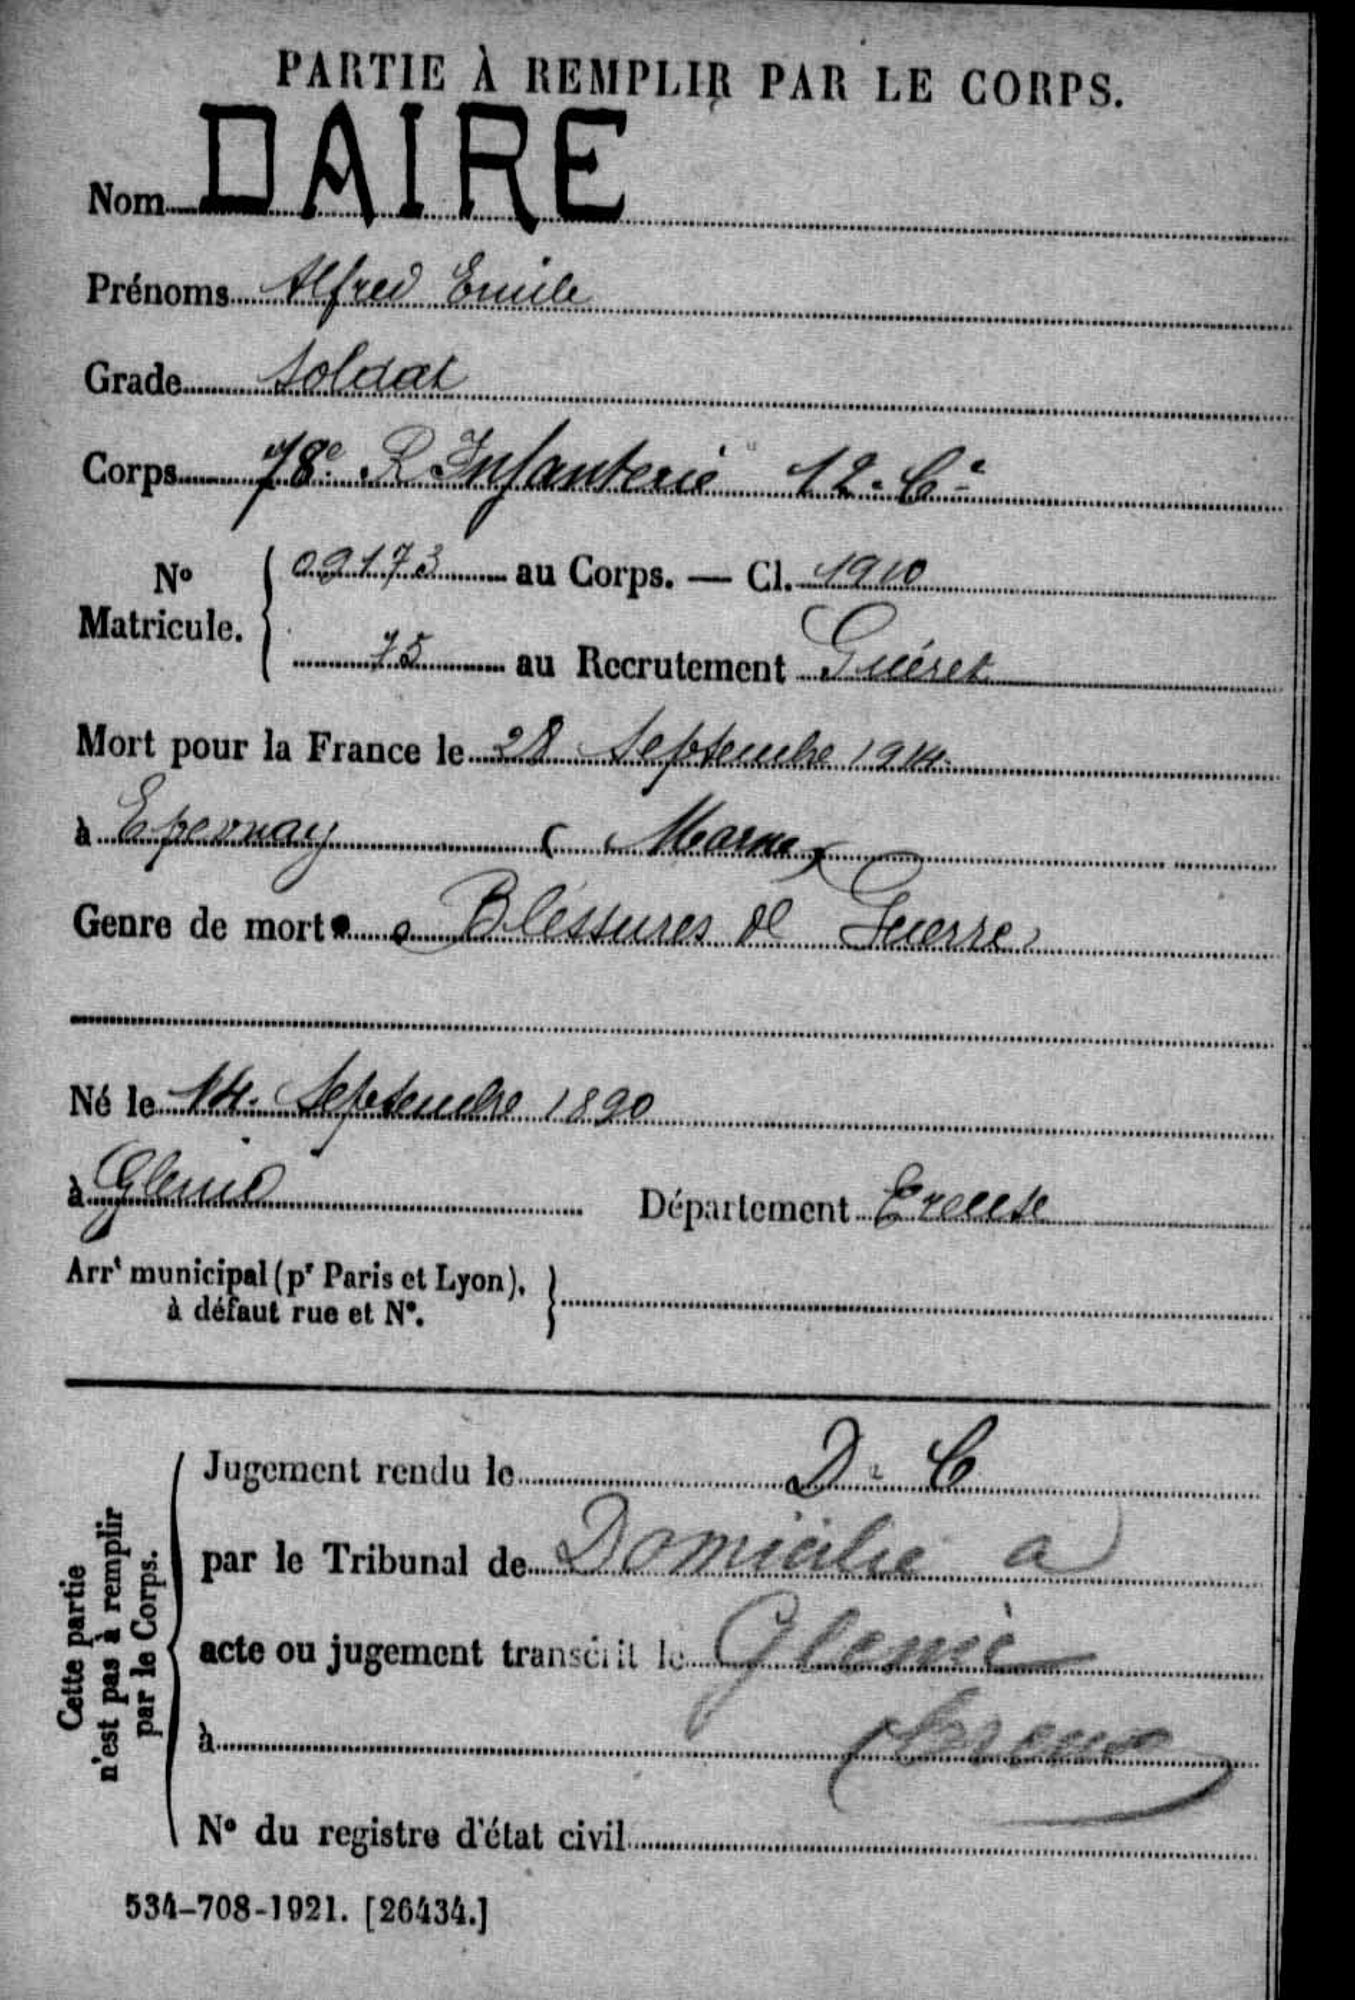 PARTIE À REMPLIR PAR LE CORPS.
Nom DAIRE
Prénoms Alfred Emile
Grade Soldat
Corps 78e R Infanterie 12e Cie
No Matricule. 09173 au Corps. — Cl. 1910
75 au Recrutement Guéret
Mort pour la France le 28 Septembre 1914
à Epernay (Marne)
Genre de mort Blessures de Guerre
Né le 14 Septembre 1890
à Glenic Département Creuse
Arrt municipal (pr Paris et Lyon),
à défaut rue et No.
Cette partie
n'est pas à remplir
par le Corps.
Jugement rendu le D. C
par le Tribunal de Domicilié a
acte ou jugement transcrit le Glenic
à (Creuse)
No du registre d'état civil
534-708-1921. [26434.]